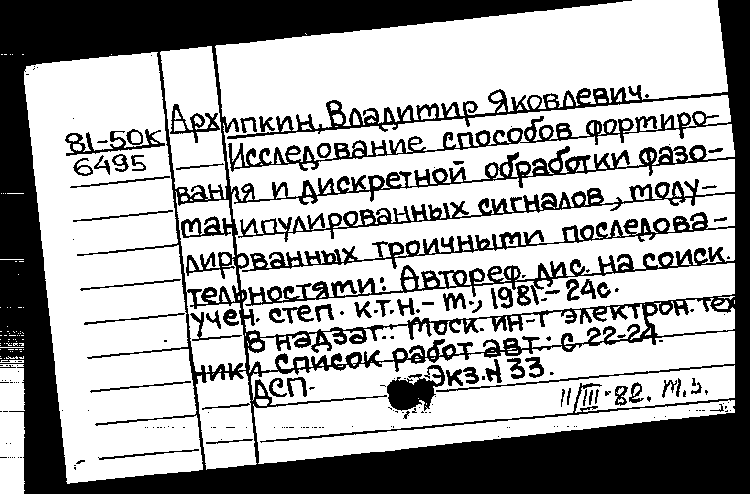 81-50К
6495
Архипкин, Владимир Яковлевич.
Исследование способов формиро-
вания и дискретной обработки фазо-
манипулированных сигналов, моду-
лированных троичными последова-
тельностями: Автореф. дис. на соиск.
учен. степ. к.т.н. - М., 1981. - 24с.
В надзаг.: Моск. ин-т электрон. тех
ники Список работ авт.: с. 22-24.
ДСП. Экз. N 33.
11/III-82. М.